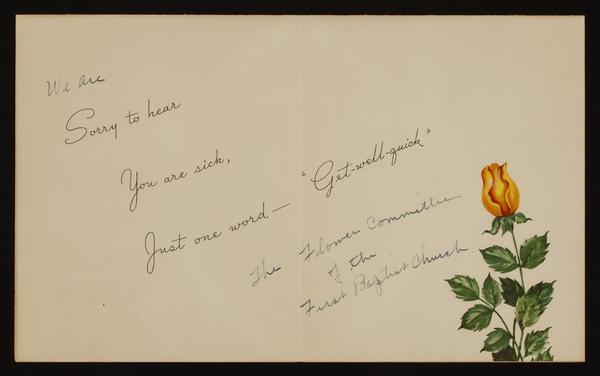 We are
Sorry to hear
You are sick,
Just one word— "Get-well-quick"
The Flower Committee
of the
First Baptist Church